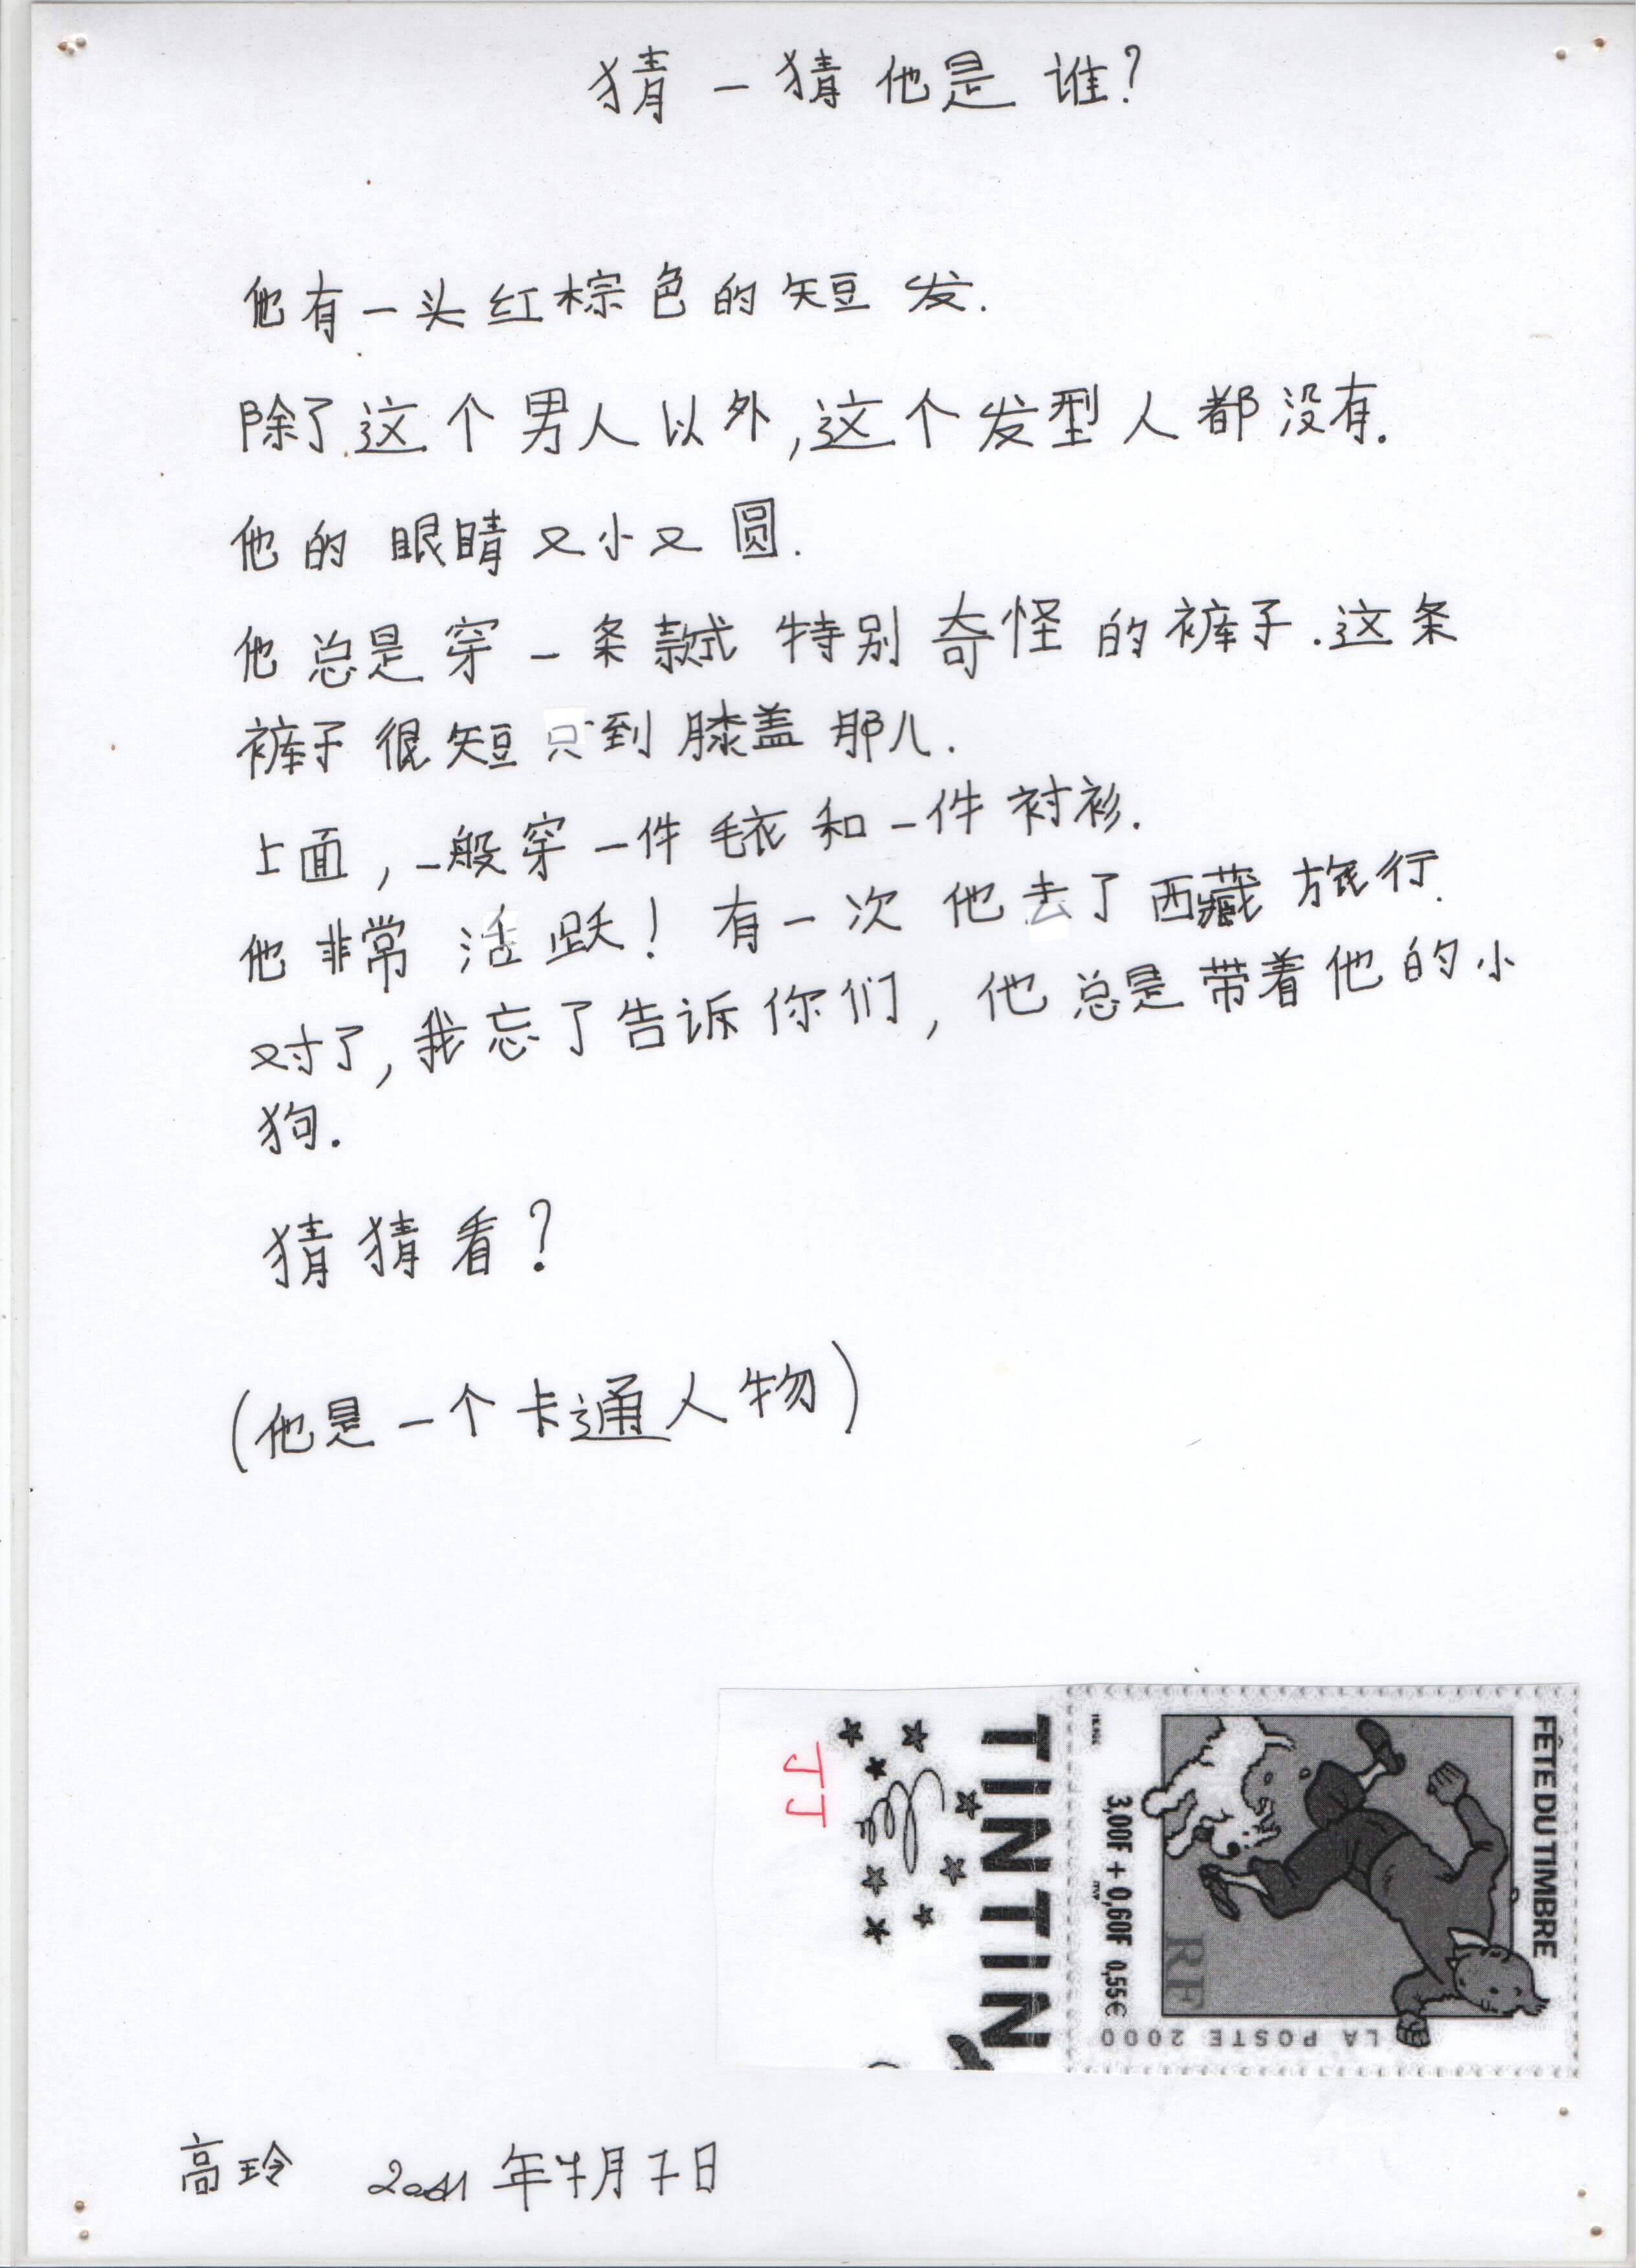 猜一猜他是谁?
他有一头红棕色的短发.
除了这个男人以外,这个发型人都没有.
他的眼睛又小又圆.
他总是穿一条款式特别奇怪的裤子.这条
裤子很短只到膝盖那儿.
上面,一般穿一件毛衣和一件衬衫.
他非常活跃!有一次他去了西藏旅行.
对了,我忘了告诉你们,他总是带着他的小
狗.
猜猜看?
(他是一个卡通人物)
FÊTE DU TIMBRE
RF
LA POSTE 2000
3,00F + 0,60F 0,55€
TINTIN
JJ
高玲 2011年4月7日